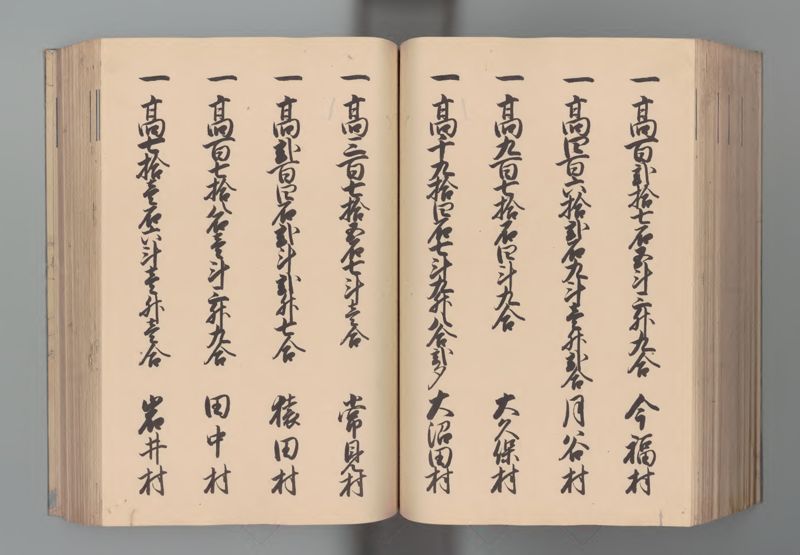 一高百弐拾七石五斗三升九合 今福村
一高四百六拾弐石九斗壱升弐合 月谷村
一高九百七拾石四斗九合 大久保村
一高千九拾四石七斗九升八合弐夕 大沼田村
一高三百七拾五石七斗壱合 常見村
一高弐百四石弐斗弐升七合 猿田村
一高百七拾八石壱斗三升九合 田中村
一高七拾壱石六斗壱升壱合 岩井村